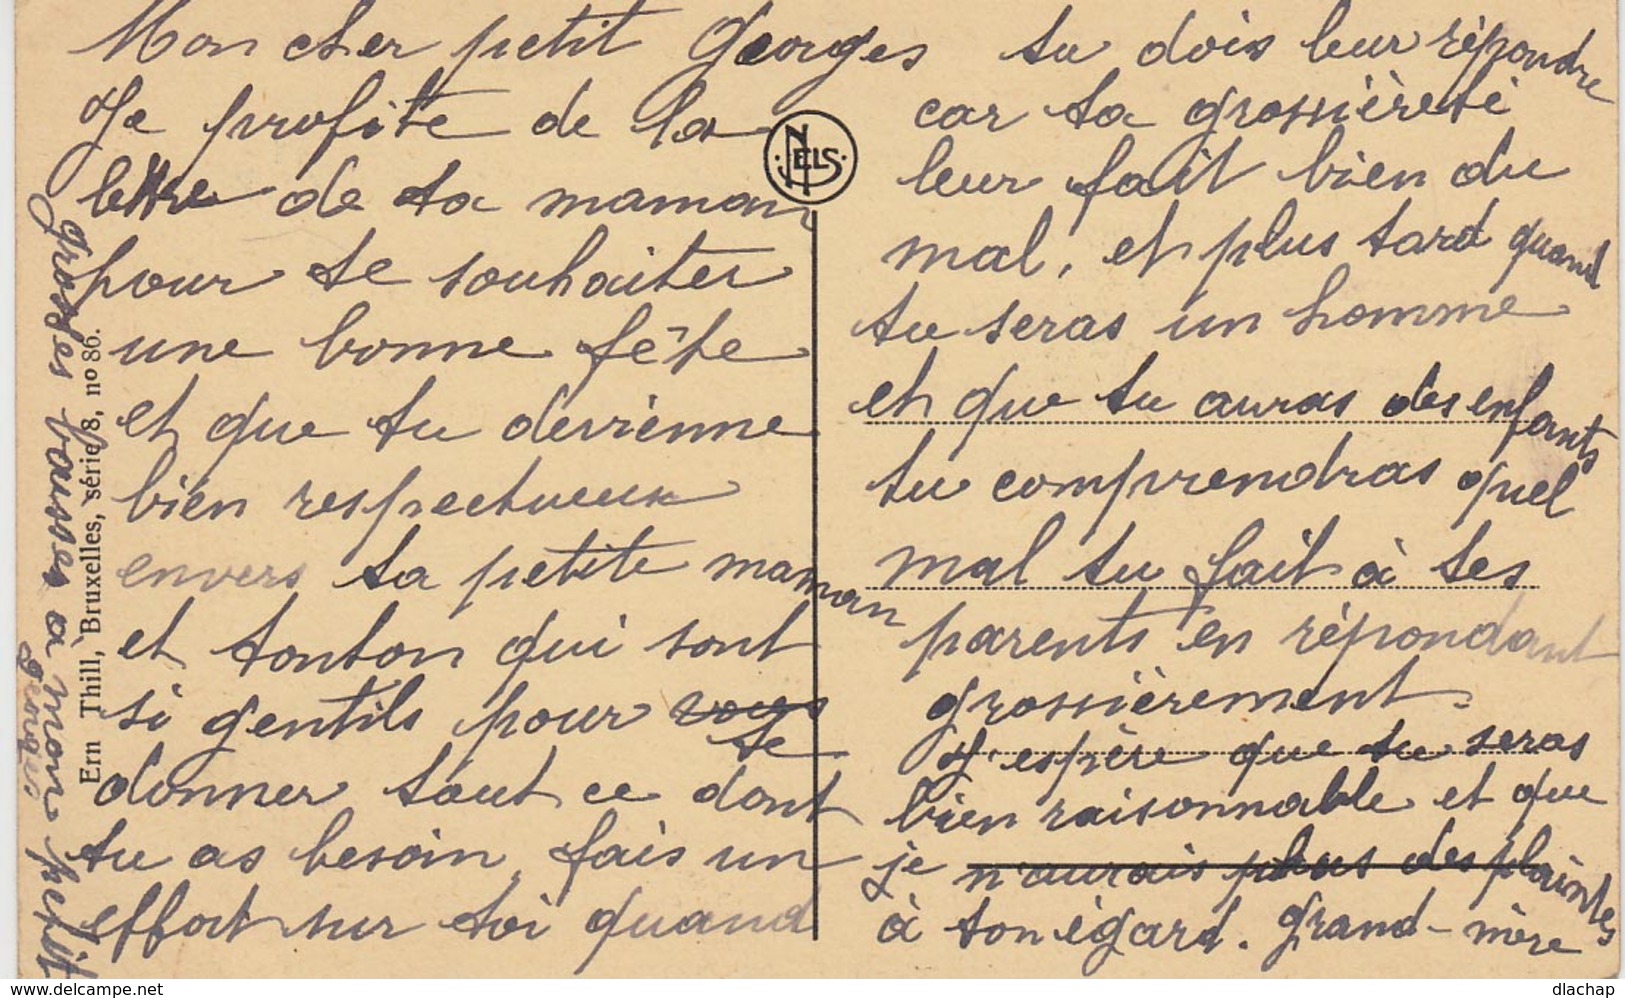 Mon cher petit Georges
Je profite de la
lettre de ta maman
pour te souhaiter
une bonne fête
et que tu devienne
bien respectueux
envers ta petite maman
et tonton qui sont
si gentils pour vous
te
donner tout ce dont
tu as besoin, fais un
effort sur toi quand
tu dois leur répondre
car ta grossièreté
leur fait bien du
mal, et plus tard quand
tu seras un homme
et que tu auras des enfants
tu comprendras quel
mal tu fait à tes
parents en répondant
grossièrement.
J'espère que tu seras
bien raisonnable et que
je n'aurais plus des plaintes
à ton égard. grand-mère
grosses baisses à mon petit
georges
Ern Thill, Bruxelles, série 8, no 86.
NELS
delcampe.net
dlachap